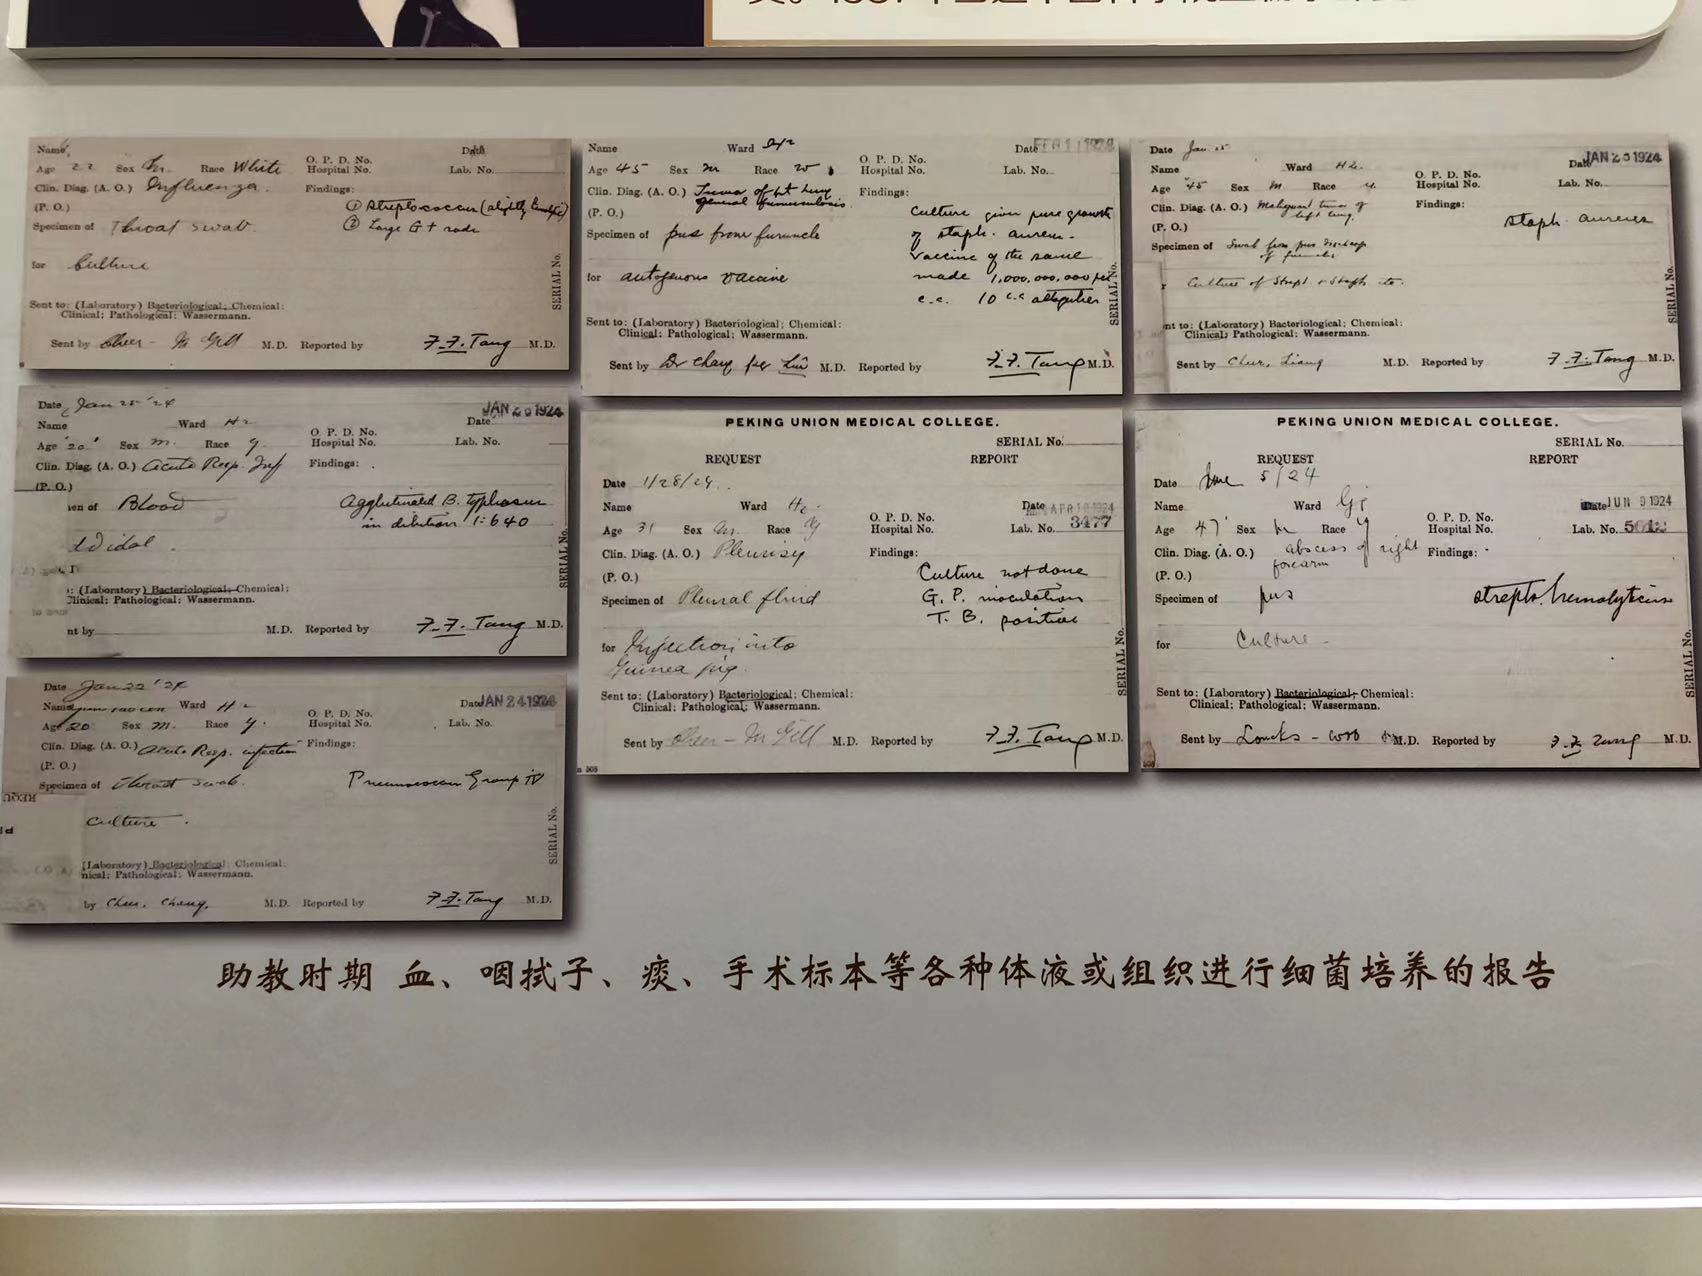 Name
Date
Age 22 Sex M. Race White
O. P. D. No.
Hospital No.
Lab. No.
Clin. Diag. (A. O.) Influenza.
Findings:
(P. O.)
① Streptococcus (slightly hemolytic)
② Large G + rods
Specimen of Throat swab.
for Culture
SERIAL No.
Sent to: (Laboratory) Bacteriological; Chemical:
Clinical; Pathological; Wassermann.
Sent by M.D. Reported by F.F. Tang M.D.
Name Ward
Date FEB 11 1924
Age 45 Sex m Race
O. P. D. No.
Hospital No.
Lab. No.
Clin. Diag. (A. O.) Tumor of lt lung
general furunculosis.
Findings:
(P. O.)
Specimen of pus from furuncle
for autogenous vaccine
Culture given pure growth
of staph. aureus.
Vaccine of the same
made 1,000,000,000 per
c.c. 10 c.c altogether
SERIAL No.
Sent to: (Laboratory) Bacteriological; Chemical:
Clinical; Pathological; Wassermann.
Sent by Dr Chang per Liu M.D. Reported by F.F. Tang M.D.
Date Jan. 25
Name Ward H2.
Date JAN 25 1924
Age 45 Sex M. Race y.
O. P. D. No.
Hospital No.
Lab. No.
Clin. Diag. (A. O.) Malignant tumor of
left lung.
Findings:
(P. O.)
staph. aureus
Specimen of Swab from pus discharge
of furuncles
Culture of Strept & Staph etc.
SERIAL No.
nt to: (Laboratory) Bacteriological; Chemical:
Clinical; Pathological; Wassermann.
Sent by Liang M.D. Reported by F.F. Tang M.D.
Date Jan 25 '24
Name Ward H2
Date JAN 26 1924
Age 20 Sex m. Race y.
O. P. D. No.
Hospital No.
Lab. No.
Clin. Diag. (A. O.) Acute Resp. Inf
Findings:
(P. O.)
men of Blood
Agglutinated B. typhosus
in dilution 1:640
Widal.
SERIAL No.
: (Laboratory) Bacteriological; Chemical:
Clinical; Pathological; Wassermann.
nt by M.D. Reported by F.F. Tang M.D.
PEKING UNION MEDICAL COLLEGE.
SERIAL No.
REQUEST REPORT
Date 1/28/24.
Name Ward H2
Date APR 1924
Age 31 Sex m. Race y
O. P. D. No.
Hospital No.
Lab. No. 3477
Clin. Diag. (A. O.) Pleurisy
Findings:
(P. O.)
Culture not done
G. P. inoculation
T. B. positive
Specimen of Pleural fluid
for Injection into
Guinea pig.
SERIAL No.
Sent to: (Laboratory) Bacteriological; Chemical:
Clinical; Pathological; Wassermann.
Sent by M.D. Reported by F.F. Tang M.D.
PEKING UNION MEDICAL COLLEGE.
SERIAL No.
REQUEST REPORT
Date June 5/24
Name Ward
Date JUN 9 1924
Age 47 Sex m Race y
O. P. D. No.
Hospital No.
Lab. No.
Clin. Diag. (A. O.) abscess of right
forearm
Findings:
(P. O.)
Specimen of pus
strepto. hemolyticus
for Culture
SERIAL No.
Sent to: (Laboratory) Bacteriological; Chemical:
Clinical; Pathological; Wassermann.
Sent by Loucks - M.D. Reported by F.F. Tang M.D.
Date Jan 22 '24
Name Ward H2
Date JAN 24 1924
Age 20 Sex m. Race y.
O. P. D. No.
Hospital No.
Lab. No.
Clin. Diag. (A. O.) Acute Resp. infection
Findings:
(P. O.)
Specimen of Throat swab.
Pneumococcus Group IV
culture.
SERIAL No.
(Laboratory) Bacteriological; Chemical:
nical; Pathological; Wassermann.
by Chang. M.D. Reported by F.F. Tang M.D.
助教时期 血、咽拭子、痰、手术标本等各种体液或组织进行细菌培养的报告